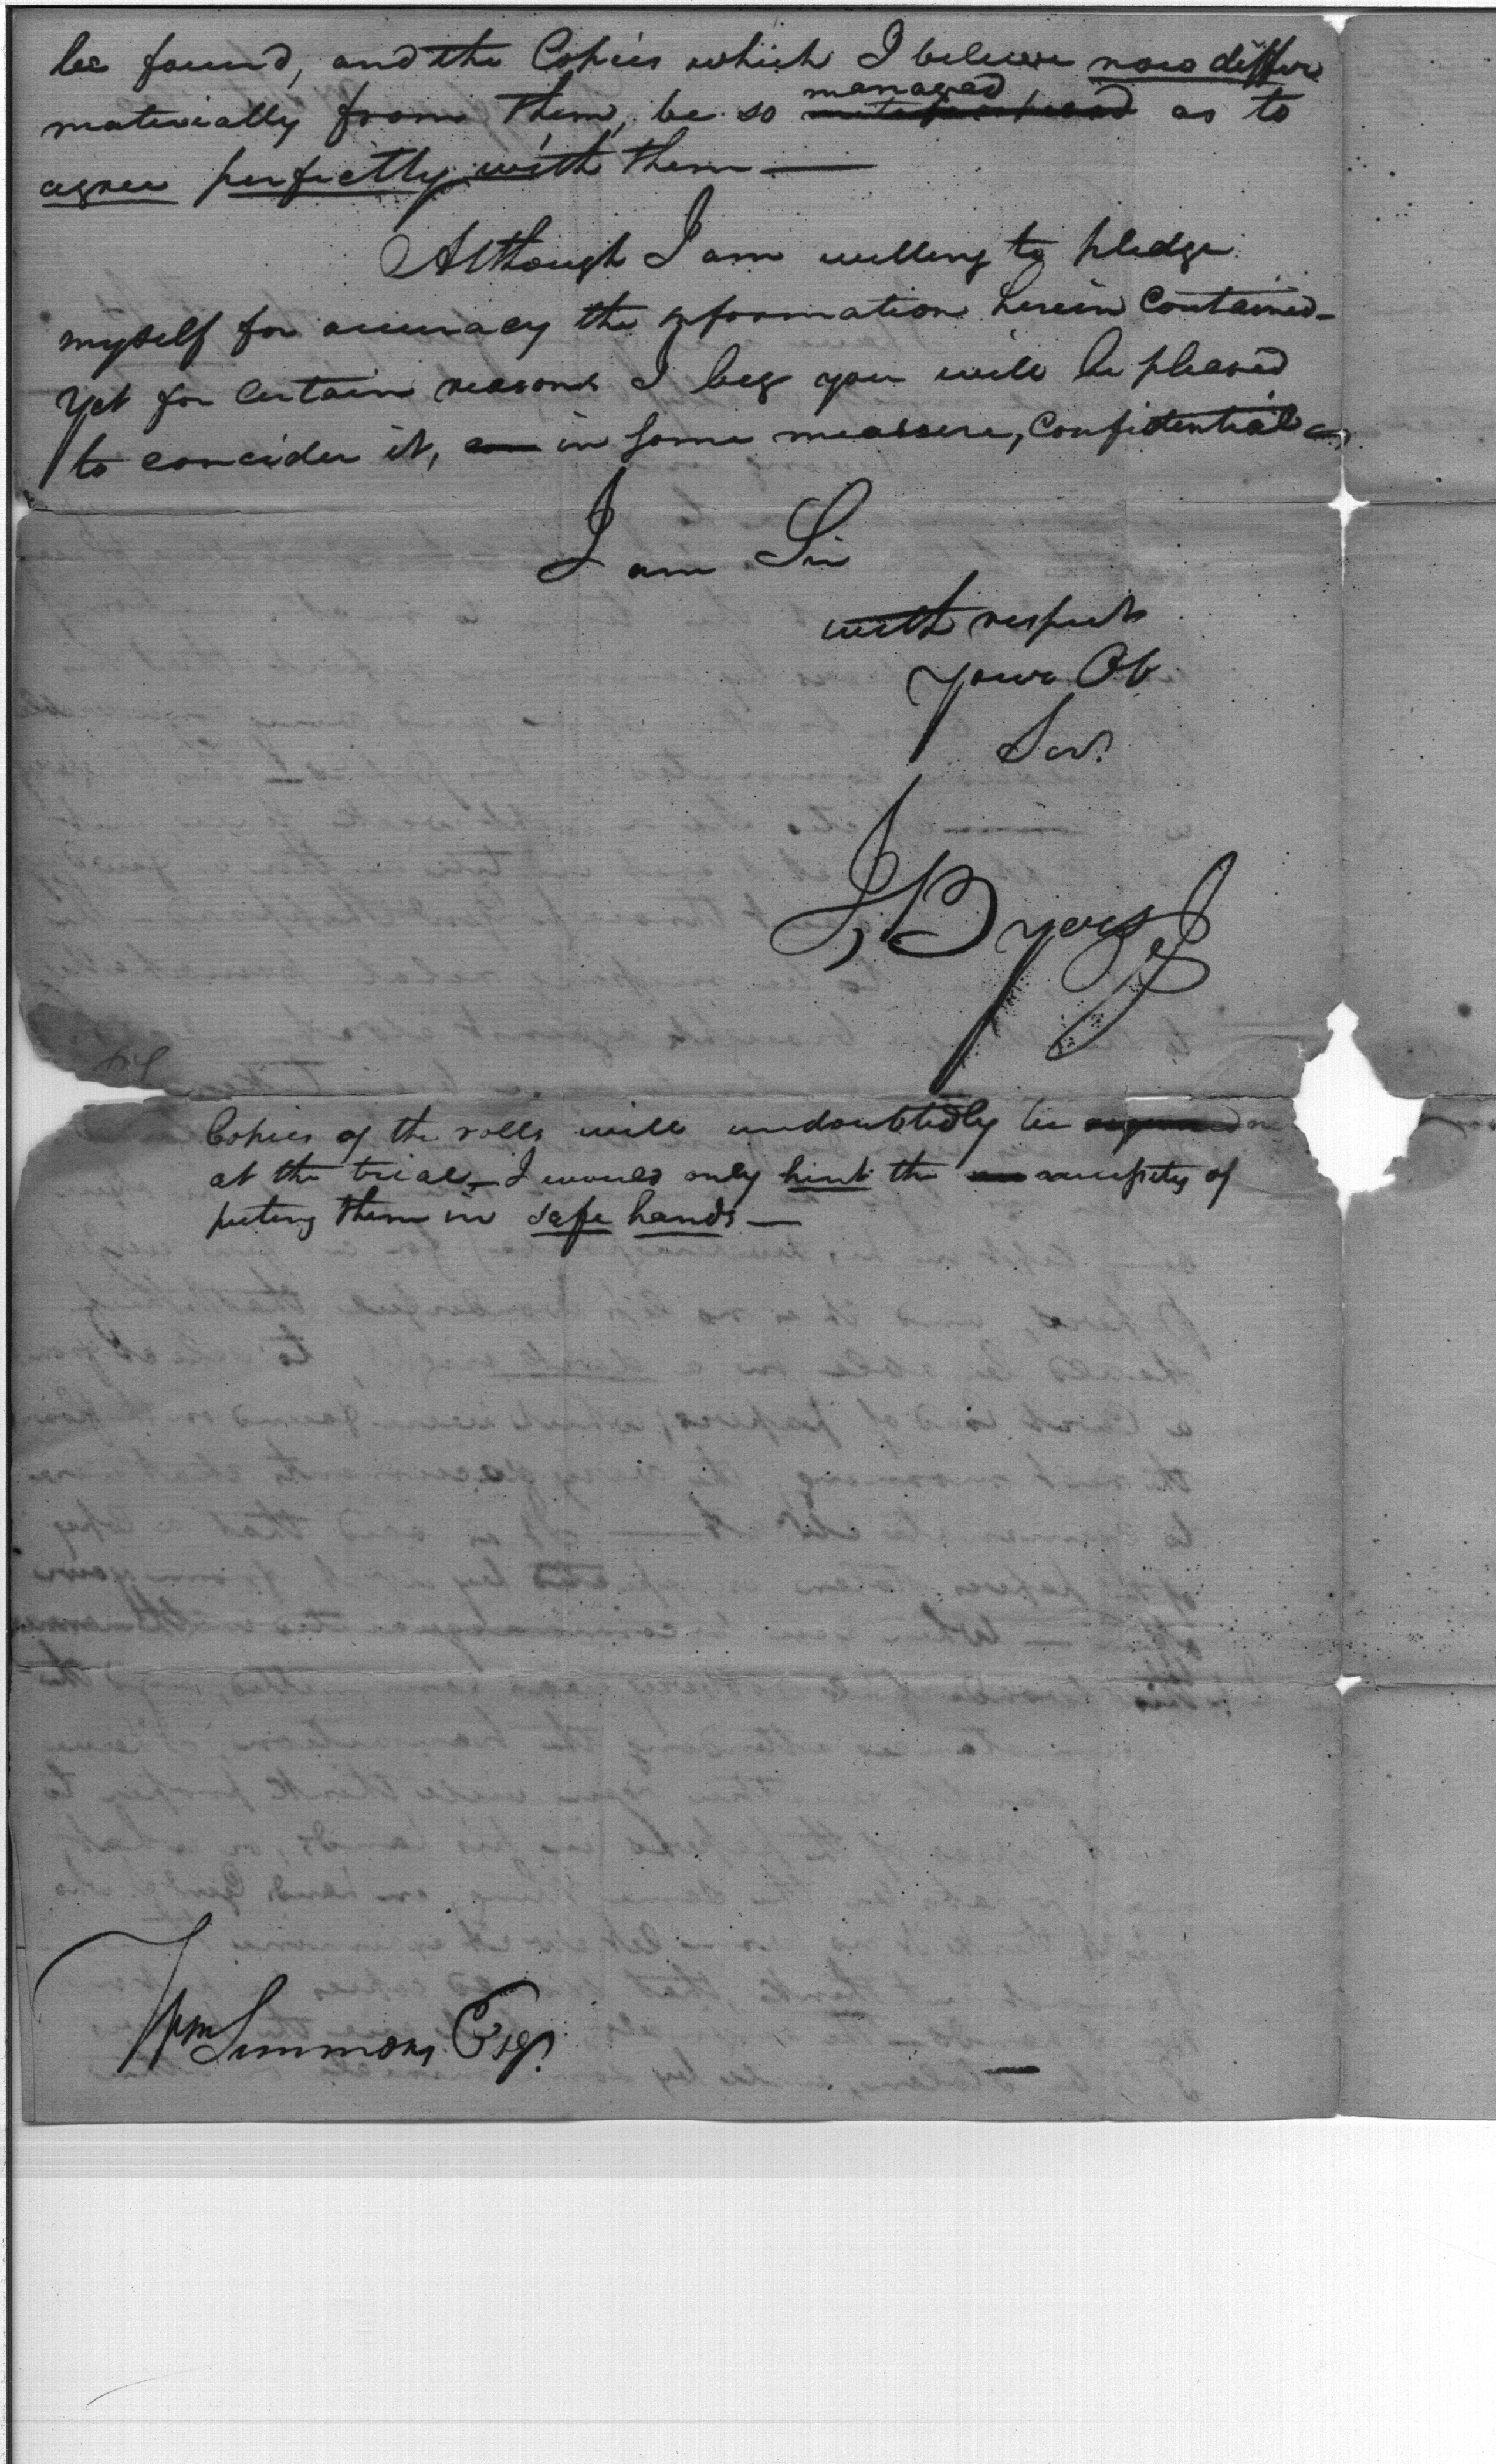 be found, and the Copies which I believe now differ
materially from them, be so managed as to
agree perfectly with them —
Although I am willing to pledge
myself for accuracy the information herein Contained -
Yet for certain reasons I beg you will be pleased
to concider it, in some measure, Confidential
I am Sir
with respect
your Ob
Servt
J. Byers
PS
Copies of the rolls will undoubtedly be
at the trial — I would only hint the necessity of
puting them in safe hands —
Wm Simmons Esqr.